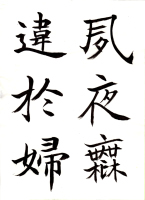 夙夜橆
違於婦